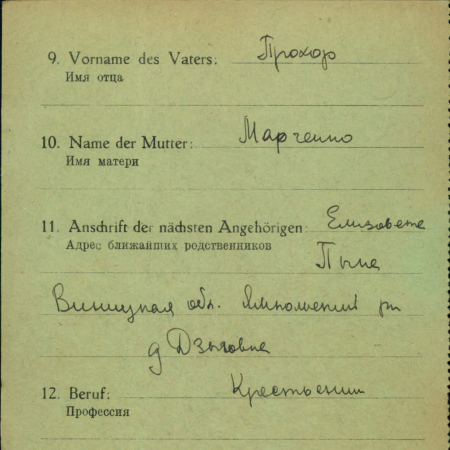 9. Vorname des Vaters: Прохор
Имя отца
10. Name der Mutter: Марченко
Имя матери
11. Anschrift der nächsten Angehörigen: Елизавета
Адрес ближайших родственников
Виницкая обл. Ямпольский рн
д Дзыговка
12. Beruf: Крестьянин
Профессия